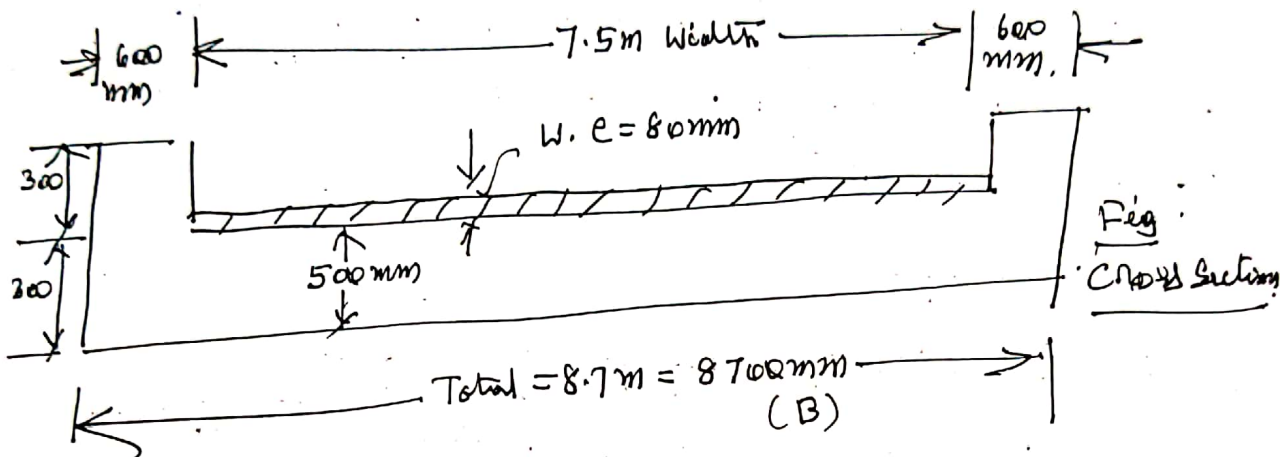 600 mm
7.5m Width
600 mm.
W. C = 80mm
300
300
500mm
Fig :
Cross Section
Total = 8.7m = 8700mm
(B)